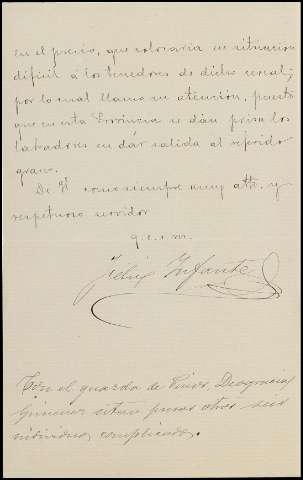 en el precio, que colocaria en situacion
dificil á los tenedores de dicho cereal;
por lo cual llamo su atención, puesto
que en esta Provincia se dán prisa los
labradores en dár salida al referido
grano.
De V. como siempre muy att. y
respetuoso servidor
q. e. s. m.
Felix Infante
Con el guarda de Pinos, Deogracias
Gimenez otros seis
individuos complicados.